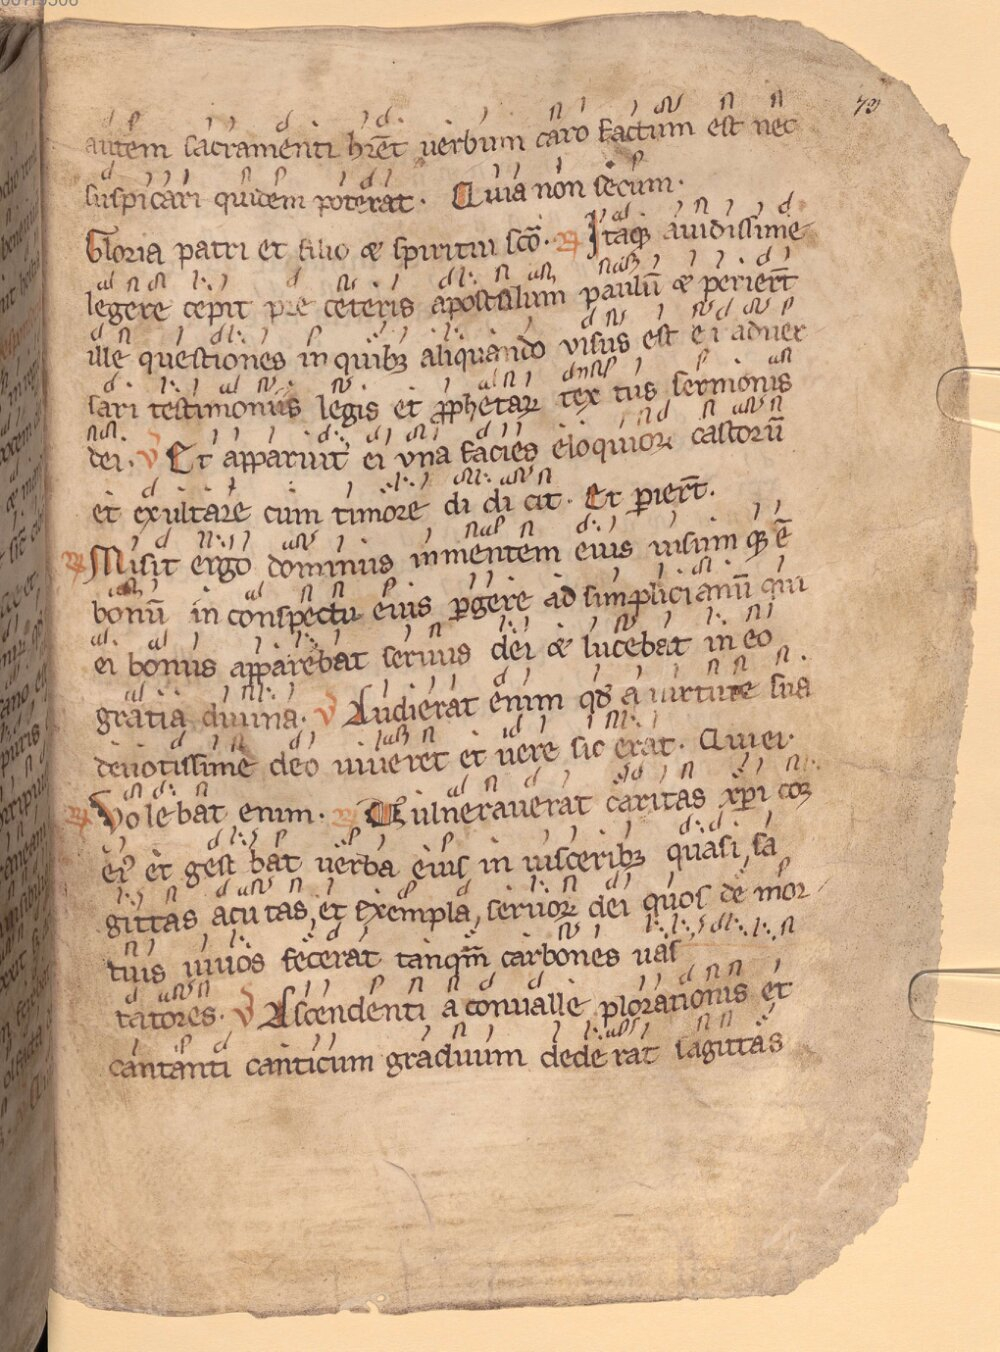 73
autem sacramenti hr̄et uerbum caro factum est nec
suspicari quidem poterat. Quia non secum.
Gloria patri et filio & spiritui sc̄o. R Itaq; auidissime
legere cepit pre ceteris apostolum paulū & perier̄t
ille questiones in quib; aliquando uisus est ei aduer
sari testimoniis legis et ꝓphetaꝝ textus sermonis
dei. V Et apparuit ei una facies eloquioꝝ castorū
et exultare cum timore didicit. Et ꝑier̄t.
R Misit ergo dominus in mentem eius uisum q; ē
bonū in conspectu eius ꝑgere ad simplicianū qui
ei bonus apparebat seruus dei & lucebat in eo
gratia diuina. V Audierat enim qd̄ a iuuentute sua
deuotissime deo uiueret et uere sic erat. Cui ei.
R Volebat enim. R Vulnerauerat caritas xp̄i coꝝ
ei9 et gestabat uerba eius in uisceribꝫ quasi sa
gittas acutas et exempla seruoꝝ dei quos de mor
tuis uiuos fecerat tanqm̄ carbones uas
tatores. V Ascendenti a conualle plorationis et
cantanti canticum graduum dederat sagittas